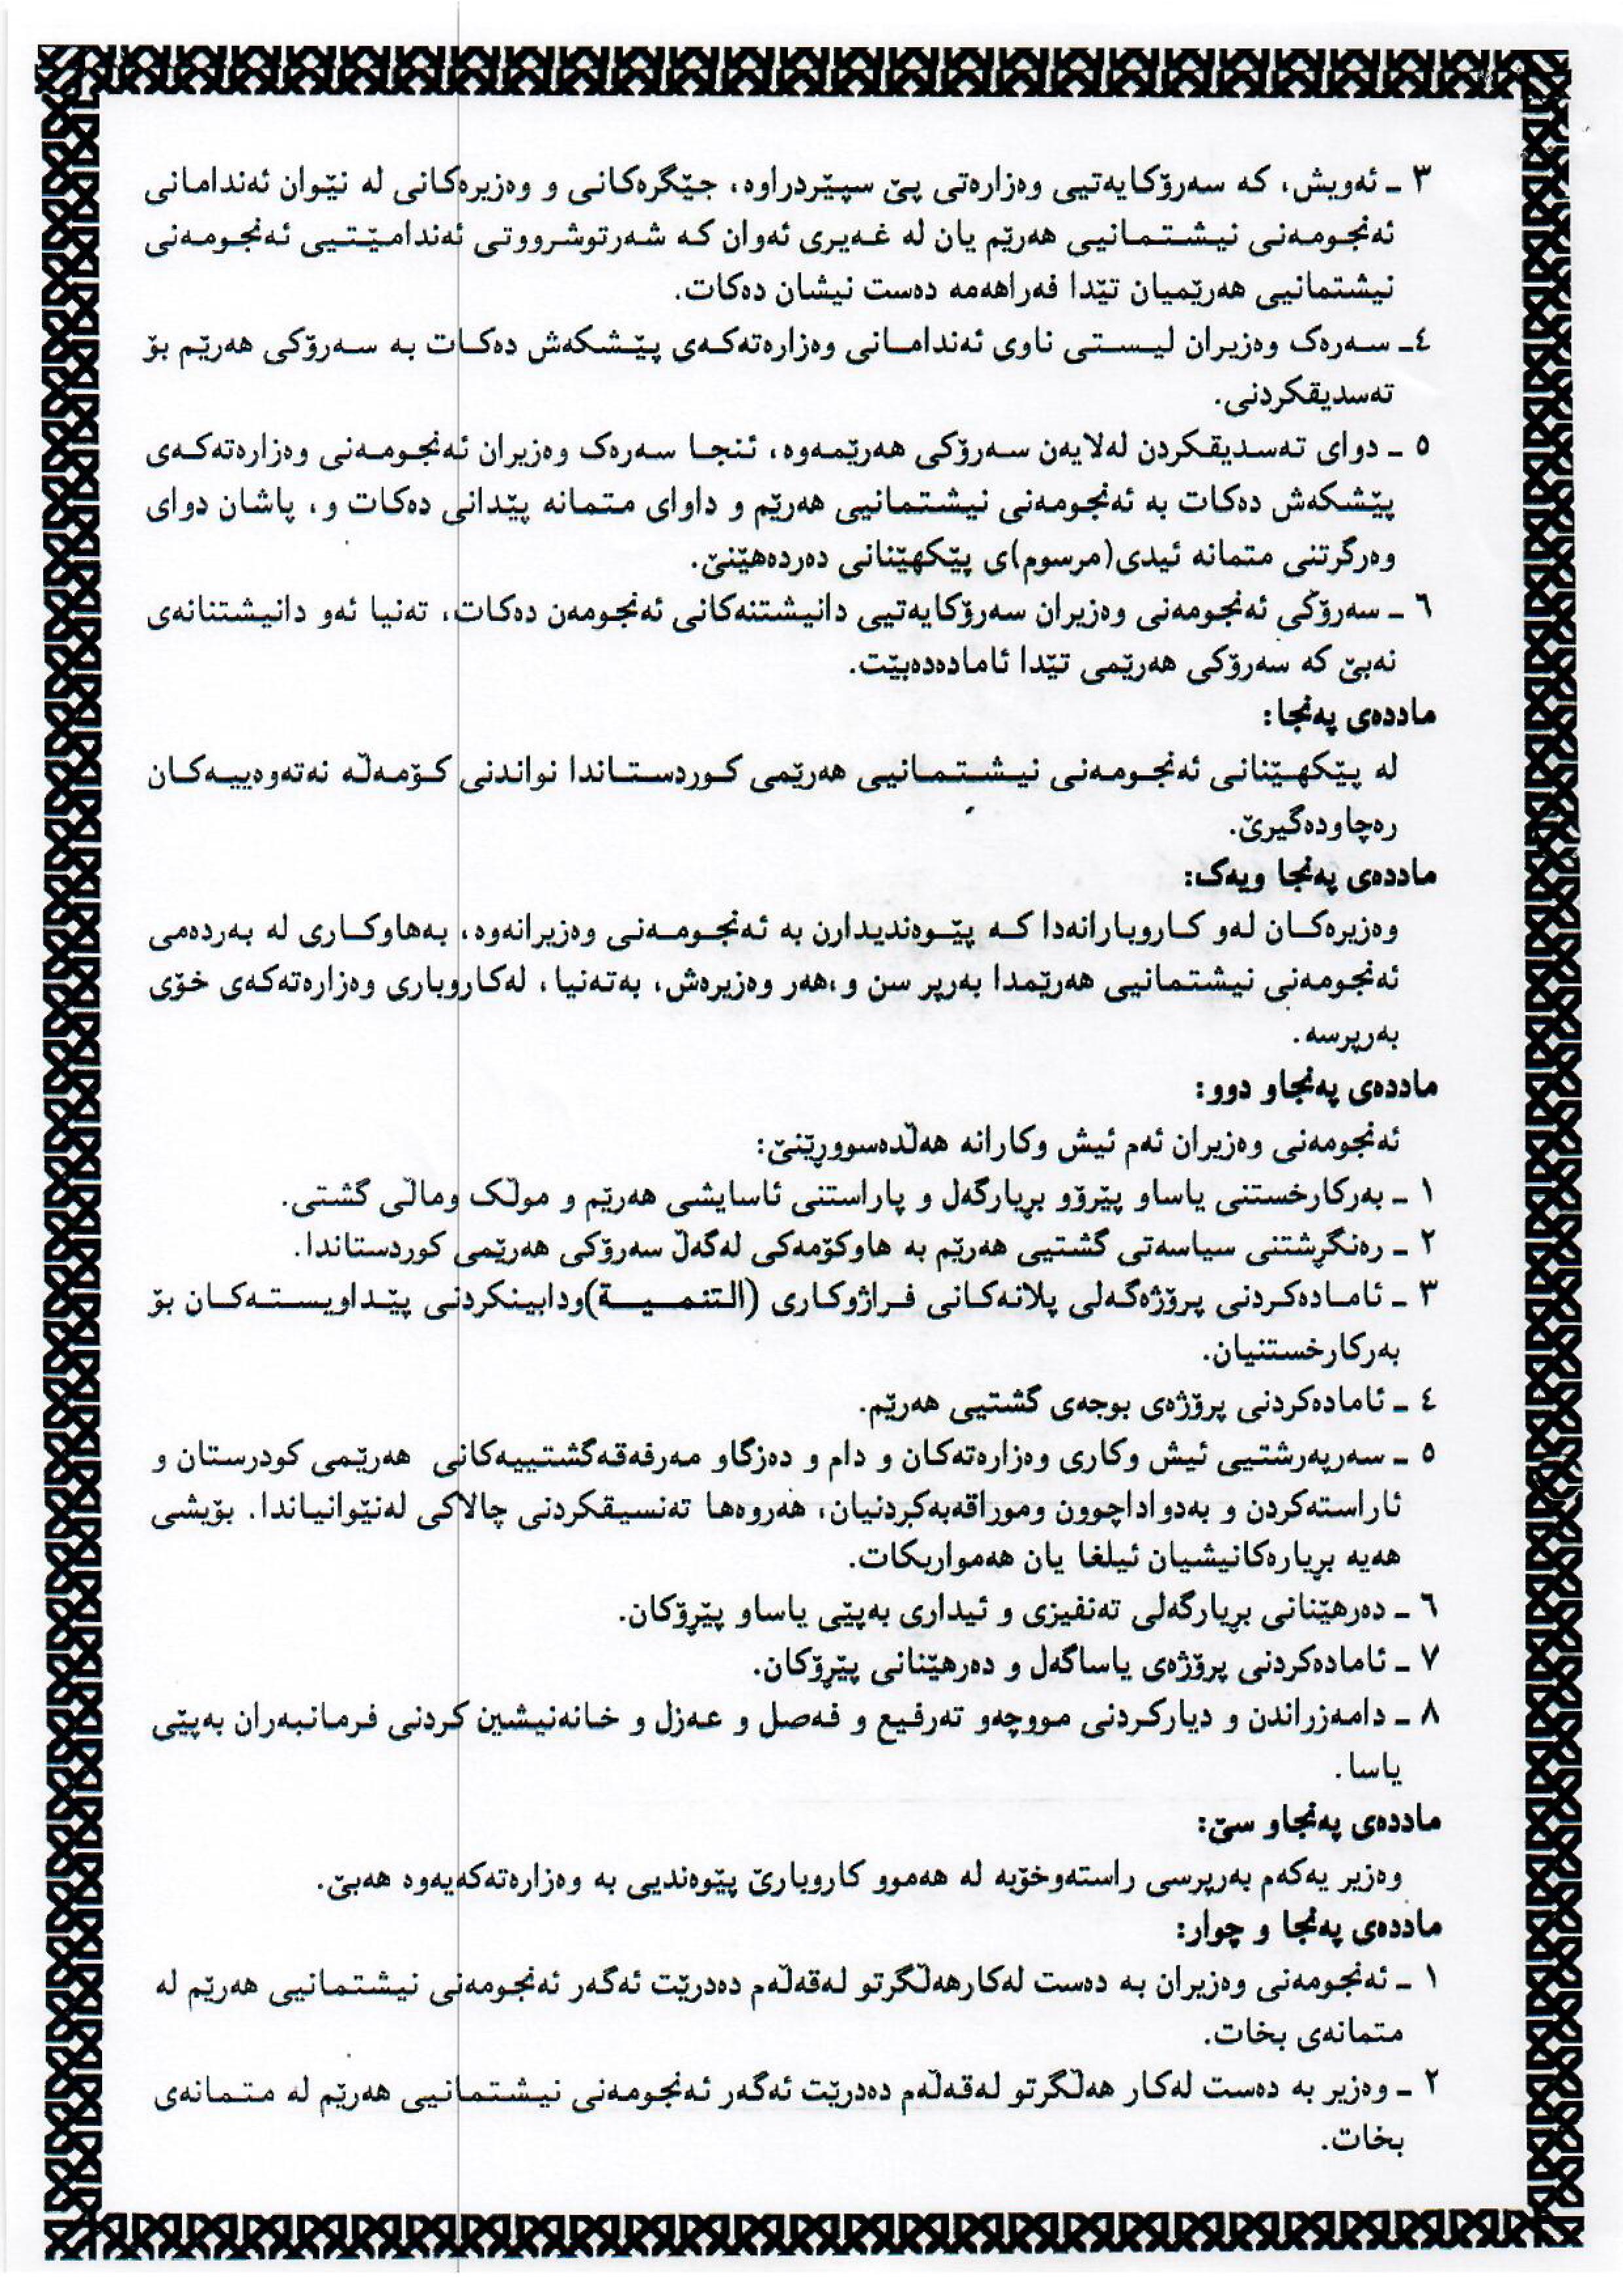 ٣ ـ ئەویش، کە سەرۆکایەتیی وەزارەتی پێ سپێردراوە، جێگرەکانی و وەزیرەکانی لە نێوان ئەندامانی
ئەنجومەنی نیشتمانیی هەرێم یان لە غەیری ئەوان کە شەرتوشرووتی ئەندامێتیی ئەنجومەنی
نیشتمانیی هەرێمیان تێدا فەراهەمە دەست نیشان دەکات.
٤ـ سەرەک وەزیران لیستی ناوی ئەندامانی وەزارەتەکەی پێشکەش دەکات بە سەرۆکی هەرێم بۆ
تەسدیقکردنی.
٥ ـ دوای تەسدیقکردن لەلایەن سەرۆکی هەرێمەوە، ئنجا سەرەک وەزیران ئەنجومەنی وەزارەتەکەی
پێشکەش دەکات بە ئەنجومەنی نیشتمانیی هەرێم و داوای متمانە پێدانی دەکات و، پاشان دوای
وەرگرتنی متمانە ئیدی(مرسوم)ی پێکهێنانی دەردەهێنێ.
٦ ـ سەرۆکی ئەنجومەنی وەزیران سەرۆکایەتیی دانیشتنەکانی ئەنجومەن دەکات، تەنیا ئەو دانیشتنانەی
نەبێ کە سەرۆکی هەرێمی تێدا ئامادەدەبێت.
ماددەی پەنجا:
لە پێکهێنانی ئەنجومەنی نیشتمانیی هەرێمی کوردستاندا نواندنی کۆمەڵە نەتەوەییەکان
رەچاودەگیرێ.
ماددەی پەنجا ویەک:
وەزیرەکان لەو کاروبارانەدا کە پێوەندیدارن بە ئەنجومەنی وەزیرانەوە، بەهاوکاری لە بەردەمی
ئەنجومەنی نیشتمانیی هەرێمدا بەرپر سن و،هەر وەزیرەش، بەتەنیا، لەکاروباری وەزارەتەکەی خۆی
بەرپرسە.
ماددەی پەنجاو دوو:
ئەنجومەنی وەزیران ئەم ئیش وکارانە هەڵدەسووڕێنێ:
١ ـ بەرکارخستنی یاساو پێرۆو بڕیارگەل و پاراستنی ئاسایشی هەرێم و موڵک وماڵی گشتی.
٢ ـ رەنگڕشتنی سیاسەتی گشتیی هەرێم بە هاوکۆمەکی لەگەڵ سەرۆکی هەرێمی کوردستاندا.
٣ ـ ئامادەکردنی پرۆژەگەلی پلانەکانی فراژوکاری (التنمیة)ودابینکردنی پێداویستەکان بۆ
بەرکارخستنیان.
٤ ـ ئامادەکردنی پرۆژەی بوجەی گشتیی هەرێم.
٥ ـ سەرپەرشتیی ئیش وکاری وەزارەتەکان و دام و دەزگاو مەرفەقەگشتییەکانی هەرێمی کودرستان و
ئاراستەکردن و بەدواداچوون وموراقەبەکردنیان، هەروەها تەنسیقکردنی چالاکی لەنێوانیاندا. بۆیشی
هەیە بڕیارەکانیشیان ئیلغا یان هەمواربکات.
٦ ـ دەرهێنانی بڕیارگەلی تەنفیزی و ئیداری بەپێی یاساو پێڕۆکان.
٧ ـ ئامادەکردنی پرۆژەی یاساگەل و دەرهێنانی پێڕۆکان.
٨ ـ دامەزراندن و دیارکردنی مووچەو تەرفیع و فەصل و عەزل و خانەنیشین کردنی فرمانبەران بەپێی
یاسا.
ماددەی پەنجاو سێ:
وەزیر یەکەم بەرپرسی راستەوخۆیە لە هەموو کاروبارێ پێوەندیی بە وەزارەتەکەیەوە هەبێ.
ماددەی پەنجا و چوار:
١ ـ ئەنجومەنی وەزیران بە دەست لەکارهەڵگرتو لەقەڵەم دەدرێت ئەگەر ئەنجومەنی نیشتمانیی هەرێم لە
متمانەی بخات.
٢ ـ وەزیر بە دەست لەکار هەڵگرتو لەقەڵەم دەدرێت ئەگەر ئەنجومەنی نیشتمانیی هەرێم لە متمانەی
بخات.